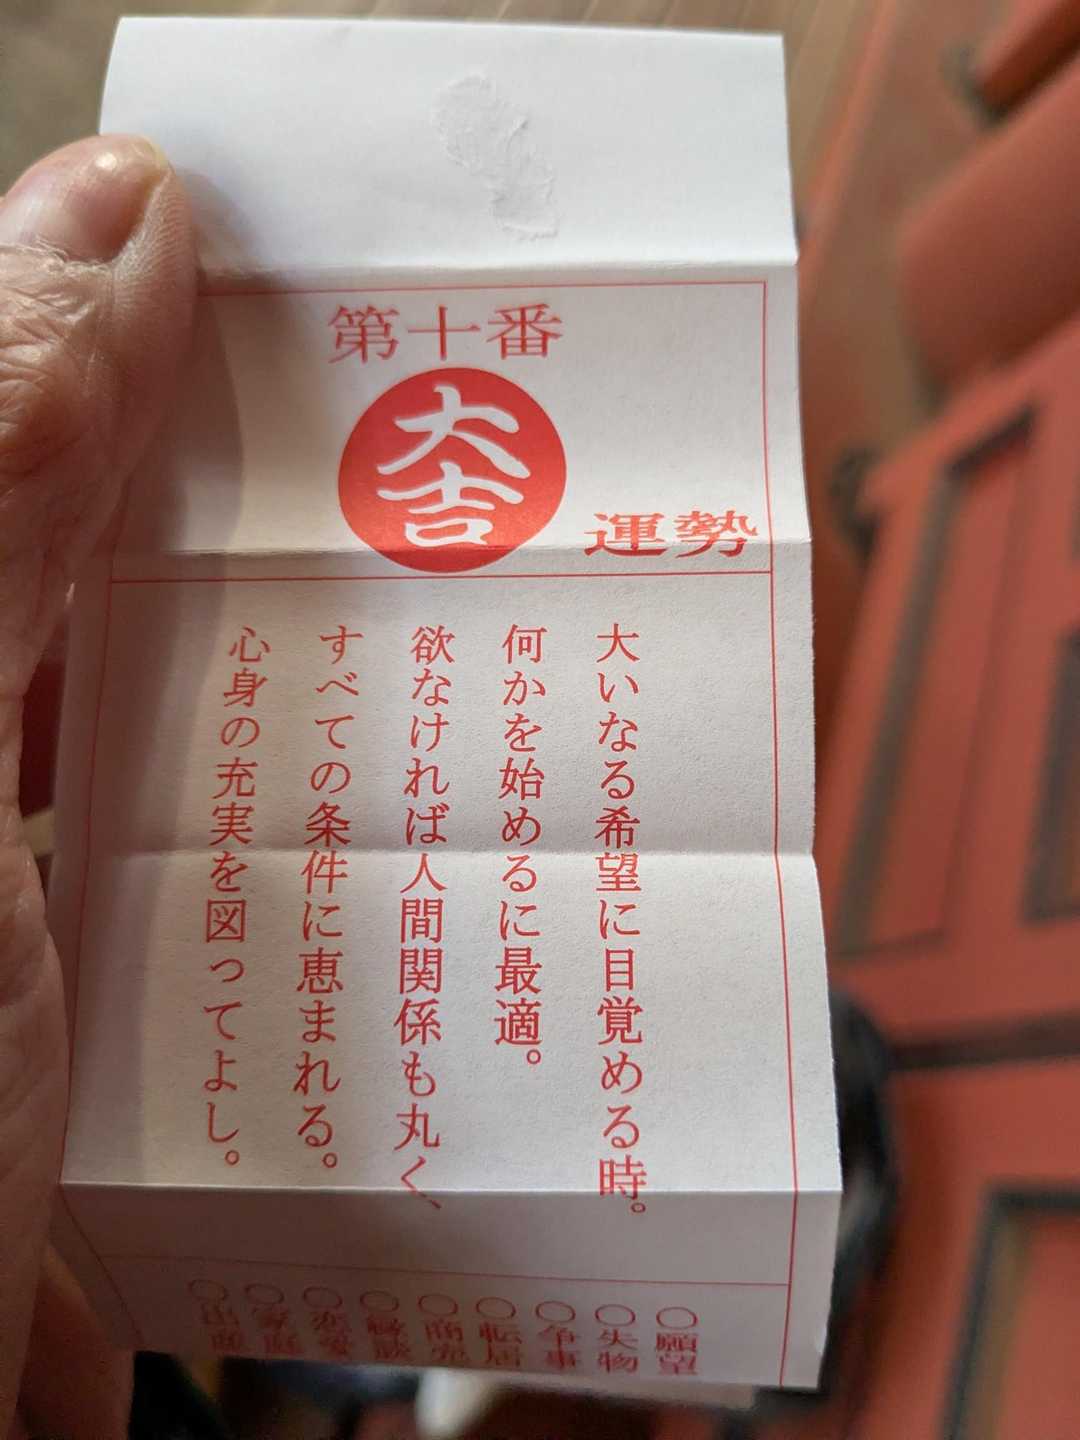 第十番
大吉
運勢
大いなる希望に目覚める時。
何かを始めるに最適。
欲なければ人間関係も丸く、
すべての条件に恵まれる。
心身の充実を図ってよし。
○願望
○失物
○争事
○転居
○商売
○縁談
○恋愛
○家庭
○出産